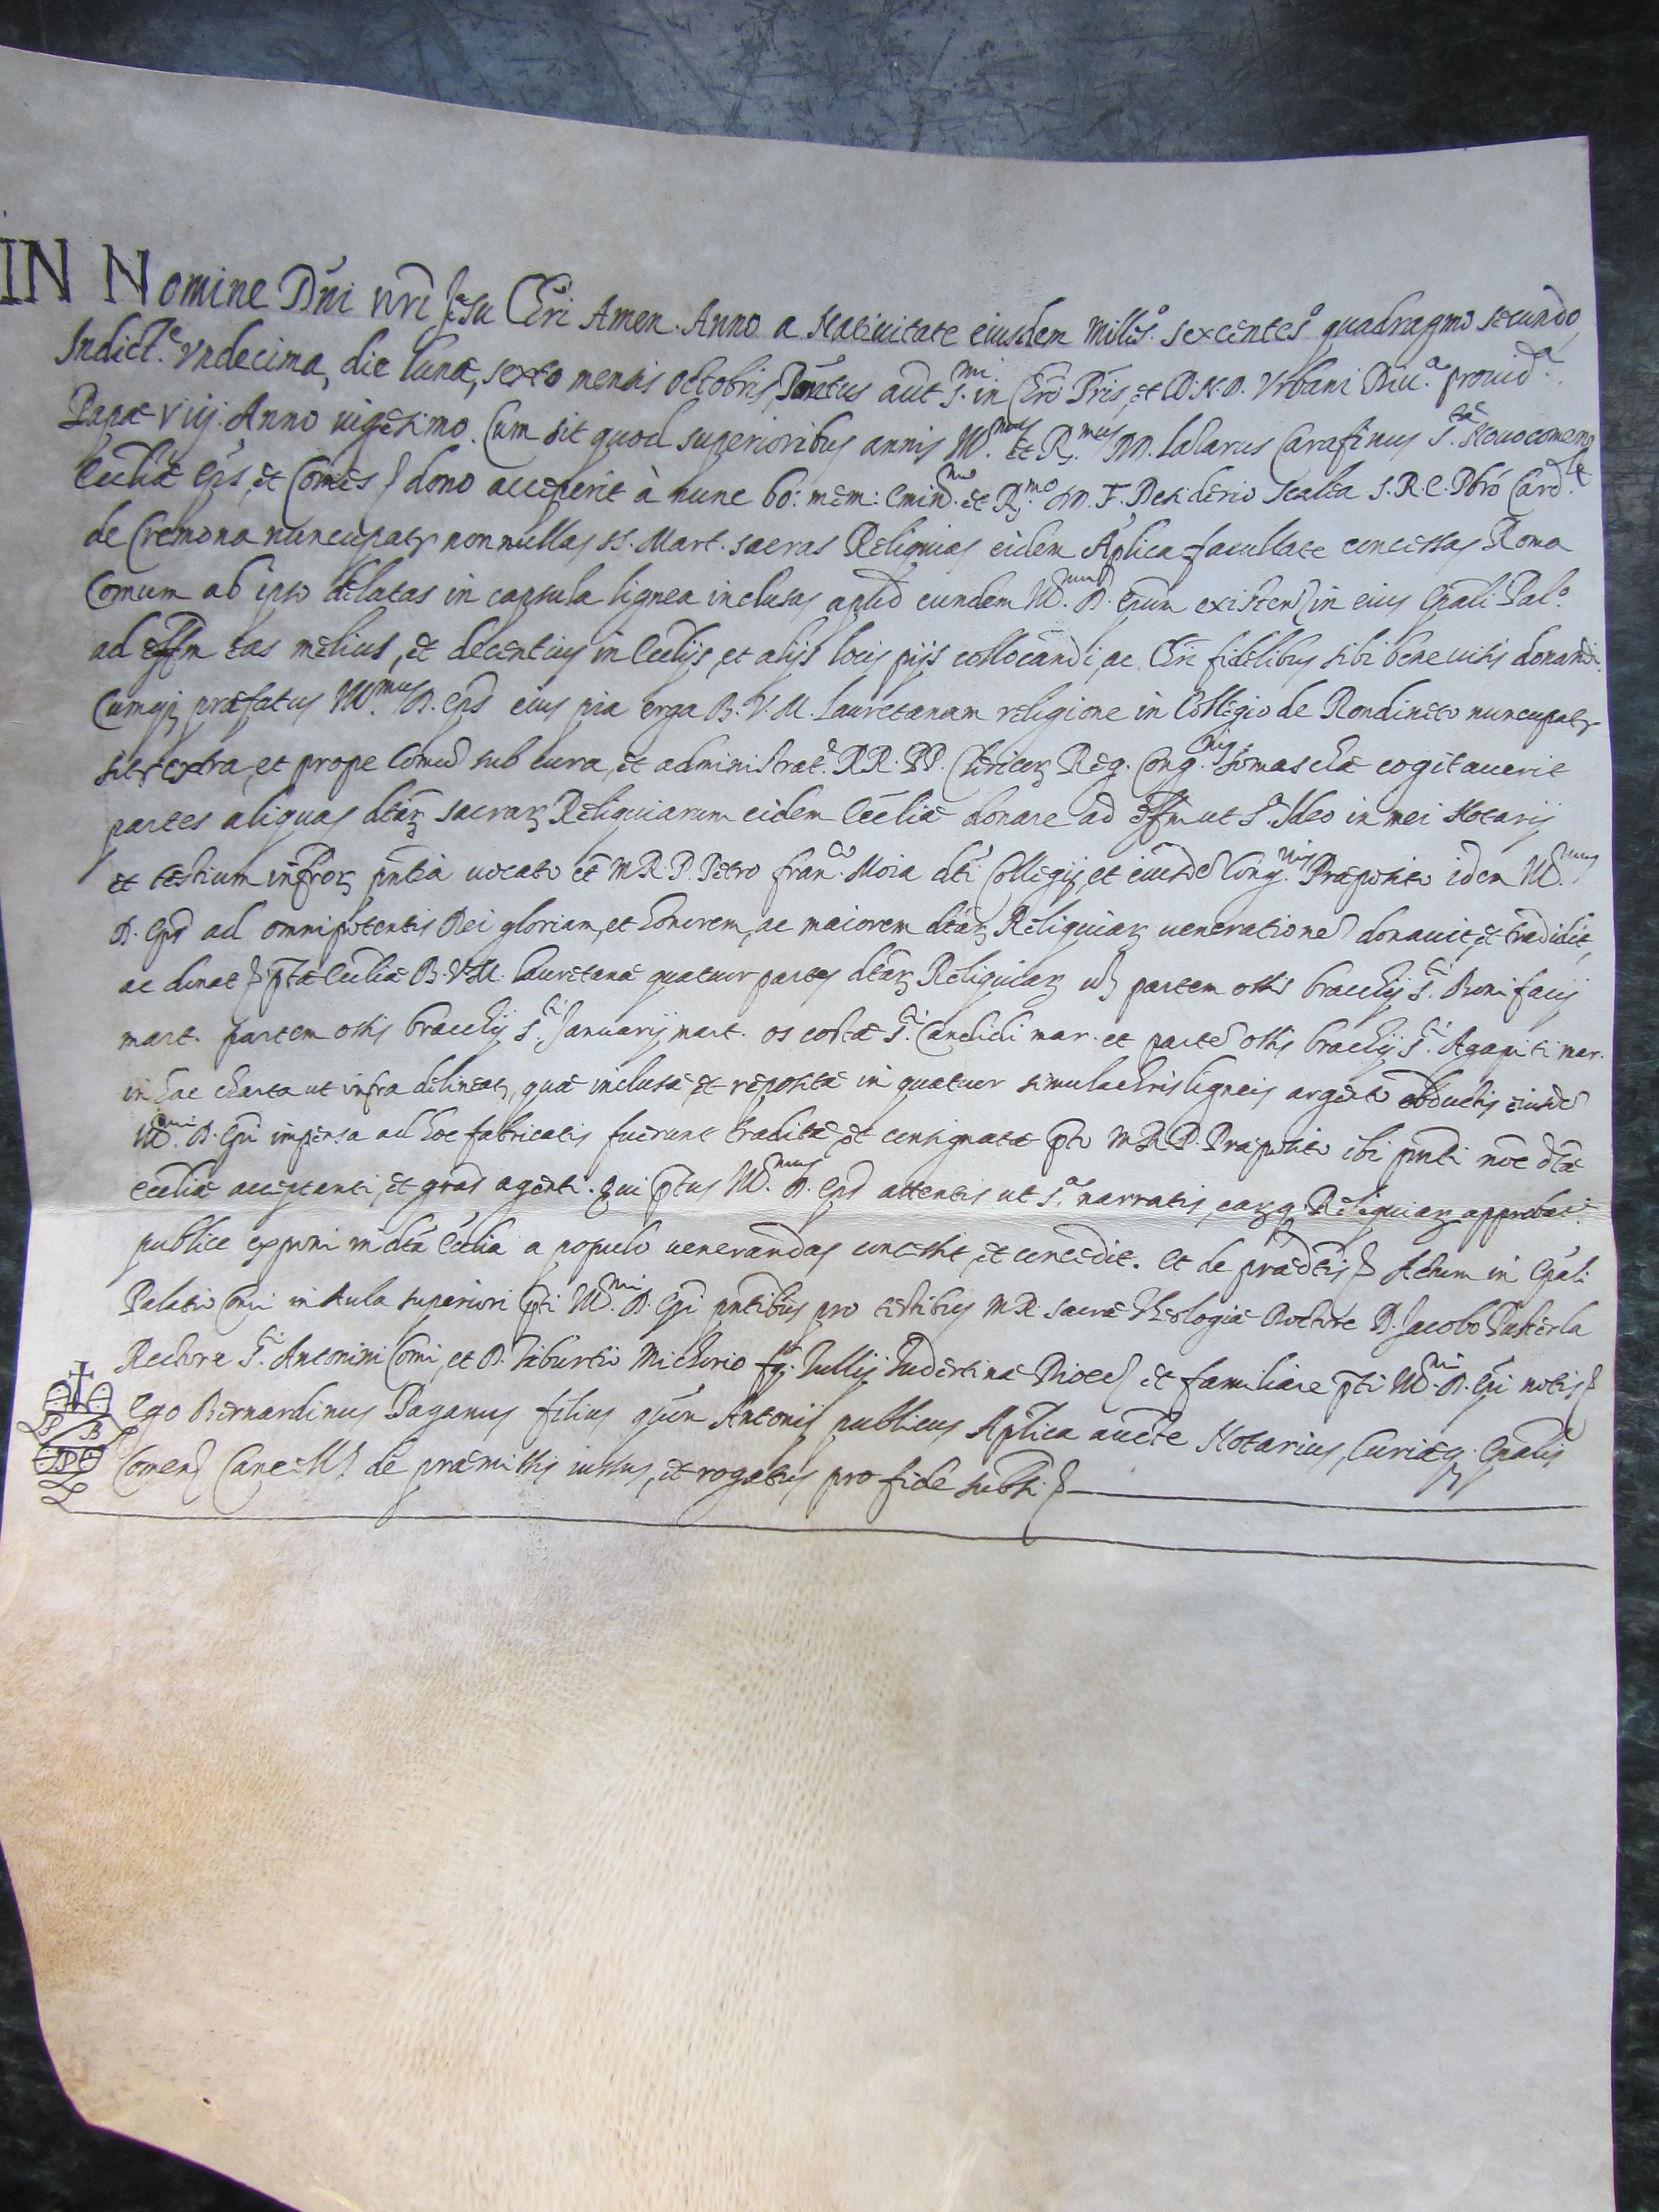 IN Nomine Dñi nrĩ Jesu Chri Amen. Anno a Natiuitate eiusdem Milleso. sexcenteso quadragmo secundo,
Indict.e Vndecima, die lunæ, sexto mensis octobris, Pontus aut. S.mi in Chro Pris, et D.N.D. Vrbani Diu.a prouid.a
Papæ Viij. Anno uigesimo. Cum sit quod superioribus annis Ill.mus et R.mus DD. Lazarus Carafinus S.tæ Nouocomens
Eccliæ Eps, et Comes dono acceperit à nunc bo: mem: Emin.mo et R.mo DD. F. Desiderio Scalea S.R.E. Pbro Card.le
de Cremona nuncupat nonnullas SS. Mart. sacras Reliquias eidem Aplica facultate concessas Roma
Comum ab ipso delatas in capsula lignea inclusas apud eundem Ill.mum D. Epum existen in eius Epali Pal.o
ad effm eas melius, et decentius in Ecclijs, et alijs locis pijs collocandi, ac Chri fidelibus sibi beneuisis donandi.
Cumq; præfatus Ill.mus D. Eps eius pia erga B.V.M. Lauretanam religione in Collegio de Rondineto nuncupat
sit extra, et prope Comum sub cura, et administrat.e RR. PP. Clericor Reg. Cong.nis Somaschæ cogitauerit
partes aliquas dtar sacrar Reliquiarum eidem Eccliæ donare ad effm ut S.a Ideo in mei Notarij
et testium infror pntia uocato et M.R.P. Petro Fran.co Moia dti Collegij, et eiusd Cong.nis Præposito idem Ill.mus
D. Eps ad omnipotentis Dei gloriam, et honorem, ac maiorem dtar Reliquiar ueneratione donauit, et tradidit,
ac donat ptæ Eccliæ B.V.M. Lauretanæ quatuor partes dtar Reliquiar ud partem ossis bracchij S.ti Bonifacij
mart. partem ossis bracchij S.ti Januarij mart. os costæ S.ti Candidi mar. et parte ossis brachij S.ti Agapiti mar.
in hac charta ut infra delineat, quæ inclusæ et repositæ in quatuor simulachris ligneis argento obductis eiusd
Ill.mi D. Epi impensa ad hoc fabricatis fuerunt traditæ, et consignatæ pto M.R.P. Præposito ibi pnti noe dtæ
Eccliæ acceptanti, et gras agenti. Qui ptus Ill.mus D. Eps attentis ut S.a narratis, earq. Reliquiar approbat.
publice exponi in dta Ecclia a populo uenerandas concessit, et concedit. Et de prædtis Actum in Epali
Palatio Comi in Aula superiori pti Ill.mi D. Epi pntibus pro testibus M.R. sacræ Theologiæ Doctore D. Jacobo Pusterla
Rectore S.ti Antonini Comi, et D. Tiburtio Michorio fq. Tullij Tudertinæ Dioec et familiare pti Ill.mi D. Epi notis
Ego Bernardinus Paganus filius quon Antonij publicus Aplica aucte Notarius, Curiæq. Epalis
Comen Cancell de præmissis iussus, et rogatus pro fide subss.